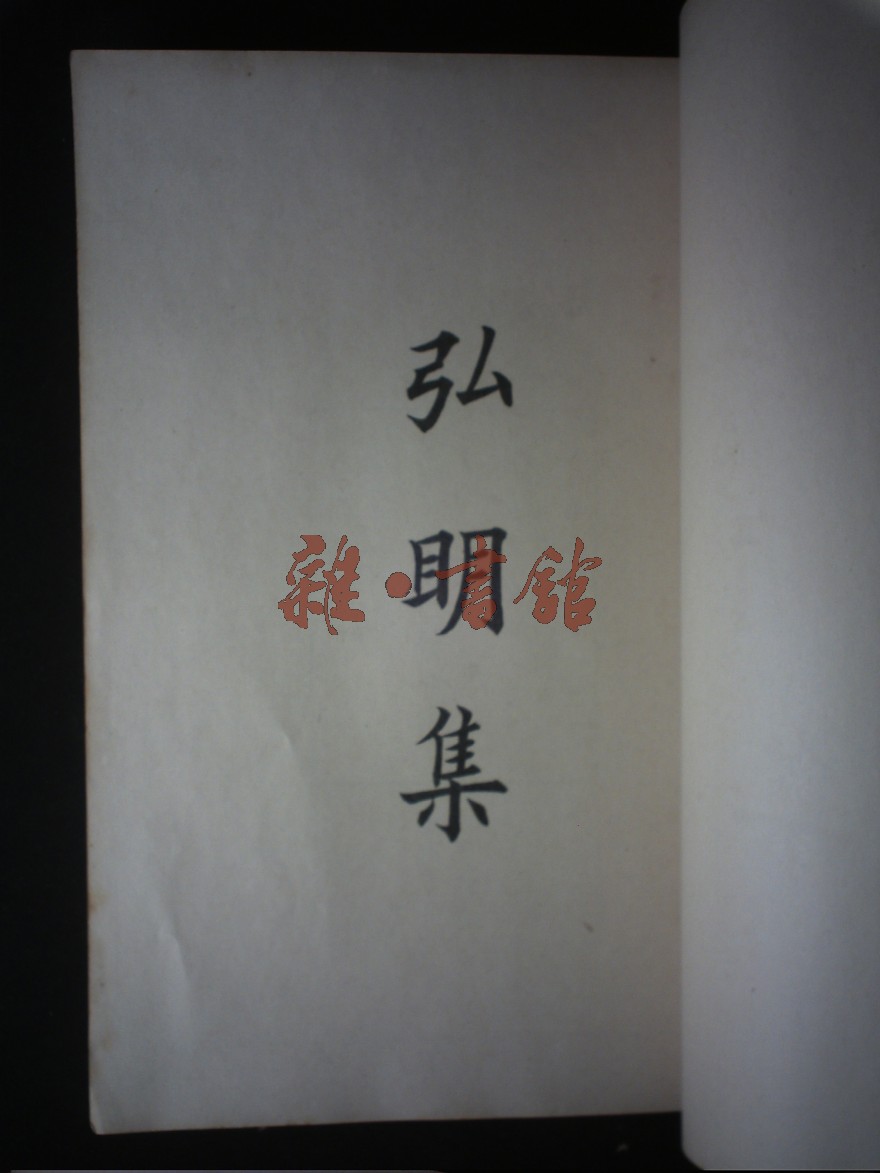 弘明集
雜·書館